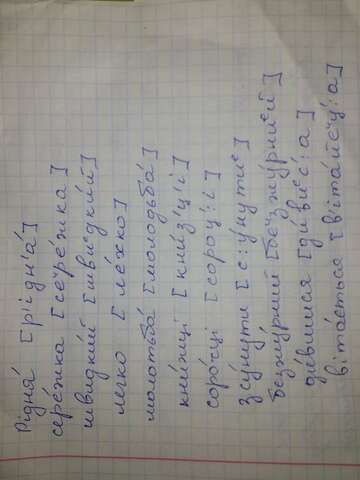 Рідня́ [р'ідн'а́]
сере́жка [сеᵘре́жка]
швидки́й [швиᵉдки́й]
легко [ле́хко]
молотьба́ [молод'ба́]
кни́жці [кни́з'ц'і]
соро́чці [сороц':і]
зсу́нути [с:у́нутиᵉ]
безжу́рний [беᶻзжу́рниᵉй]
ди́вишся [ди́виᵉс':а]
віта́ється [віта́йеᶻц':а]